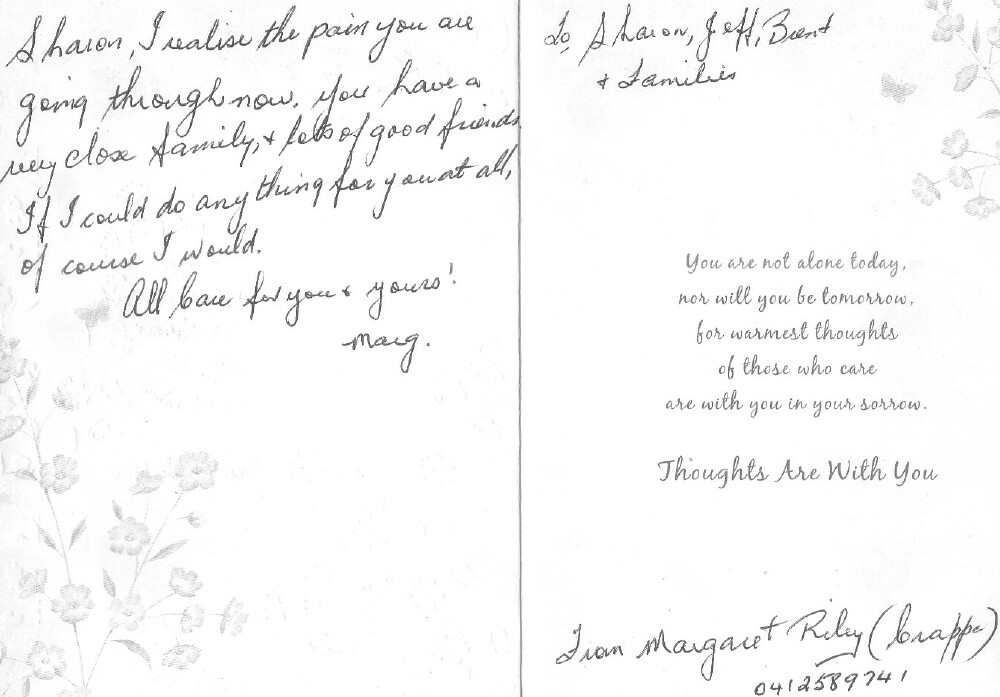 Sharon, I realise the pain you are
going through now. You have a
very close family, & lots of good friends
If I could do anything for you at all,
of course I would.
All Care for you & yours!
Marg.
To, Sharon, Jeff, Brent
& Families
You are not alone today,
nor will you be tomorrow,
for warmest thoughts
of those who care
are with you in your sorrow.
Thoughts Are With You
From Margaret Riley (Crappe)
0412589741